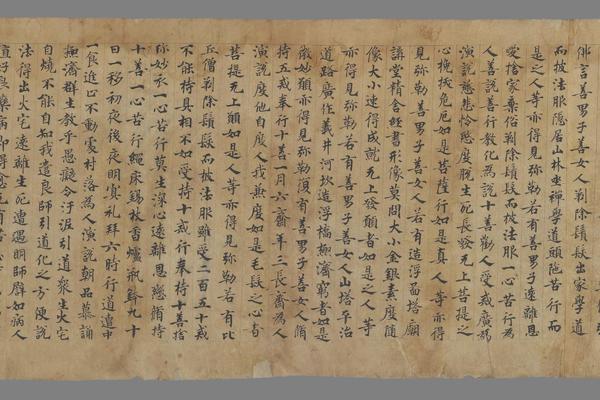 俳言善男子善女人剃除鬚髮出家學道
而披法服隱居山林坐禪學道頭陁苦行而
是之人等亦得見弥勒若有善男子遠離恩
愛捨家棄俗剃除鬚髮而披法服一心苦行為
人善說善行教化為說十善勸人受戒廣為
演說慈悲怜愍度脫生死長發无上菩提之
心挽拔危厄如是菩薩行如是真人亦得
見弥勒善男子善女人若有造浮啚塔廟
講堂精舍經書形像莫問大小金銀素度随
像大小速得成就无上發願者如是之人等
亦得見弥勒若有善男子善女人山塔平治
道路廣作義井河次造浮橋㮈濟窮者如是
微妙願亦得見弥勒復有善男子善女人脩
持五戒奉行十善一月六齋年三長齋為人
演說度他自度人我無度如是毛髮之心者
菩提无上願如是人等亦得見弥勒若有比
丘僧剃除鬚髮而披法服雖受二百五十戒
不能持具相不如受持十戒行奉持十善捨
弥妙衣一心苦行莫生深心遠離恩戀脩持
十善一心苦行繩床錫杖香爐瓶鉢九十
日一移初夜後夜明宜礼拜六時行道遺中
一食迯正不動處村落為人演說朝品暮誦
㮈濟群生教乎愚癡令汙遅引道衆生火宅
自燒不能自知我遣良師引道化之方便說
法得出火宅遠離生死遭遇明師辟如病人